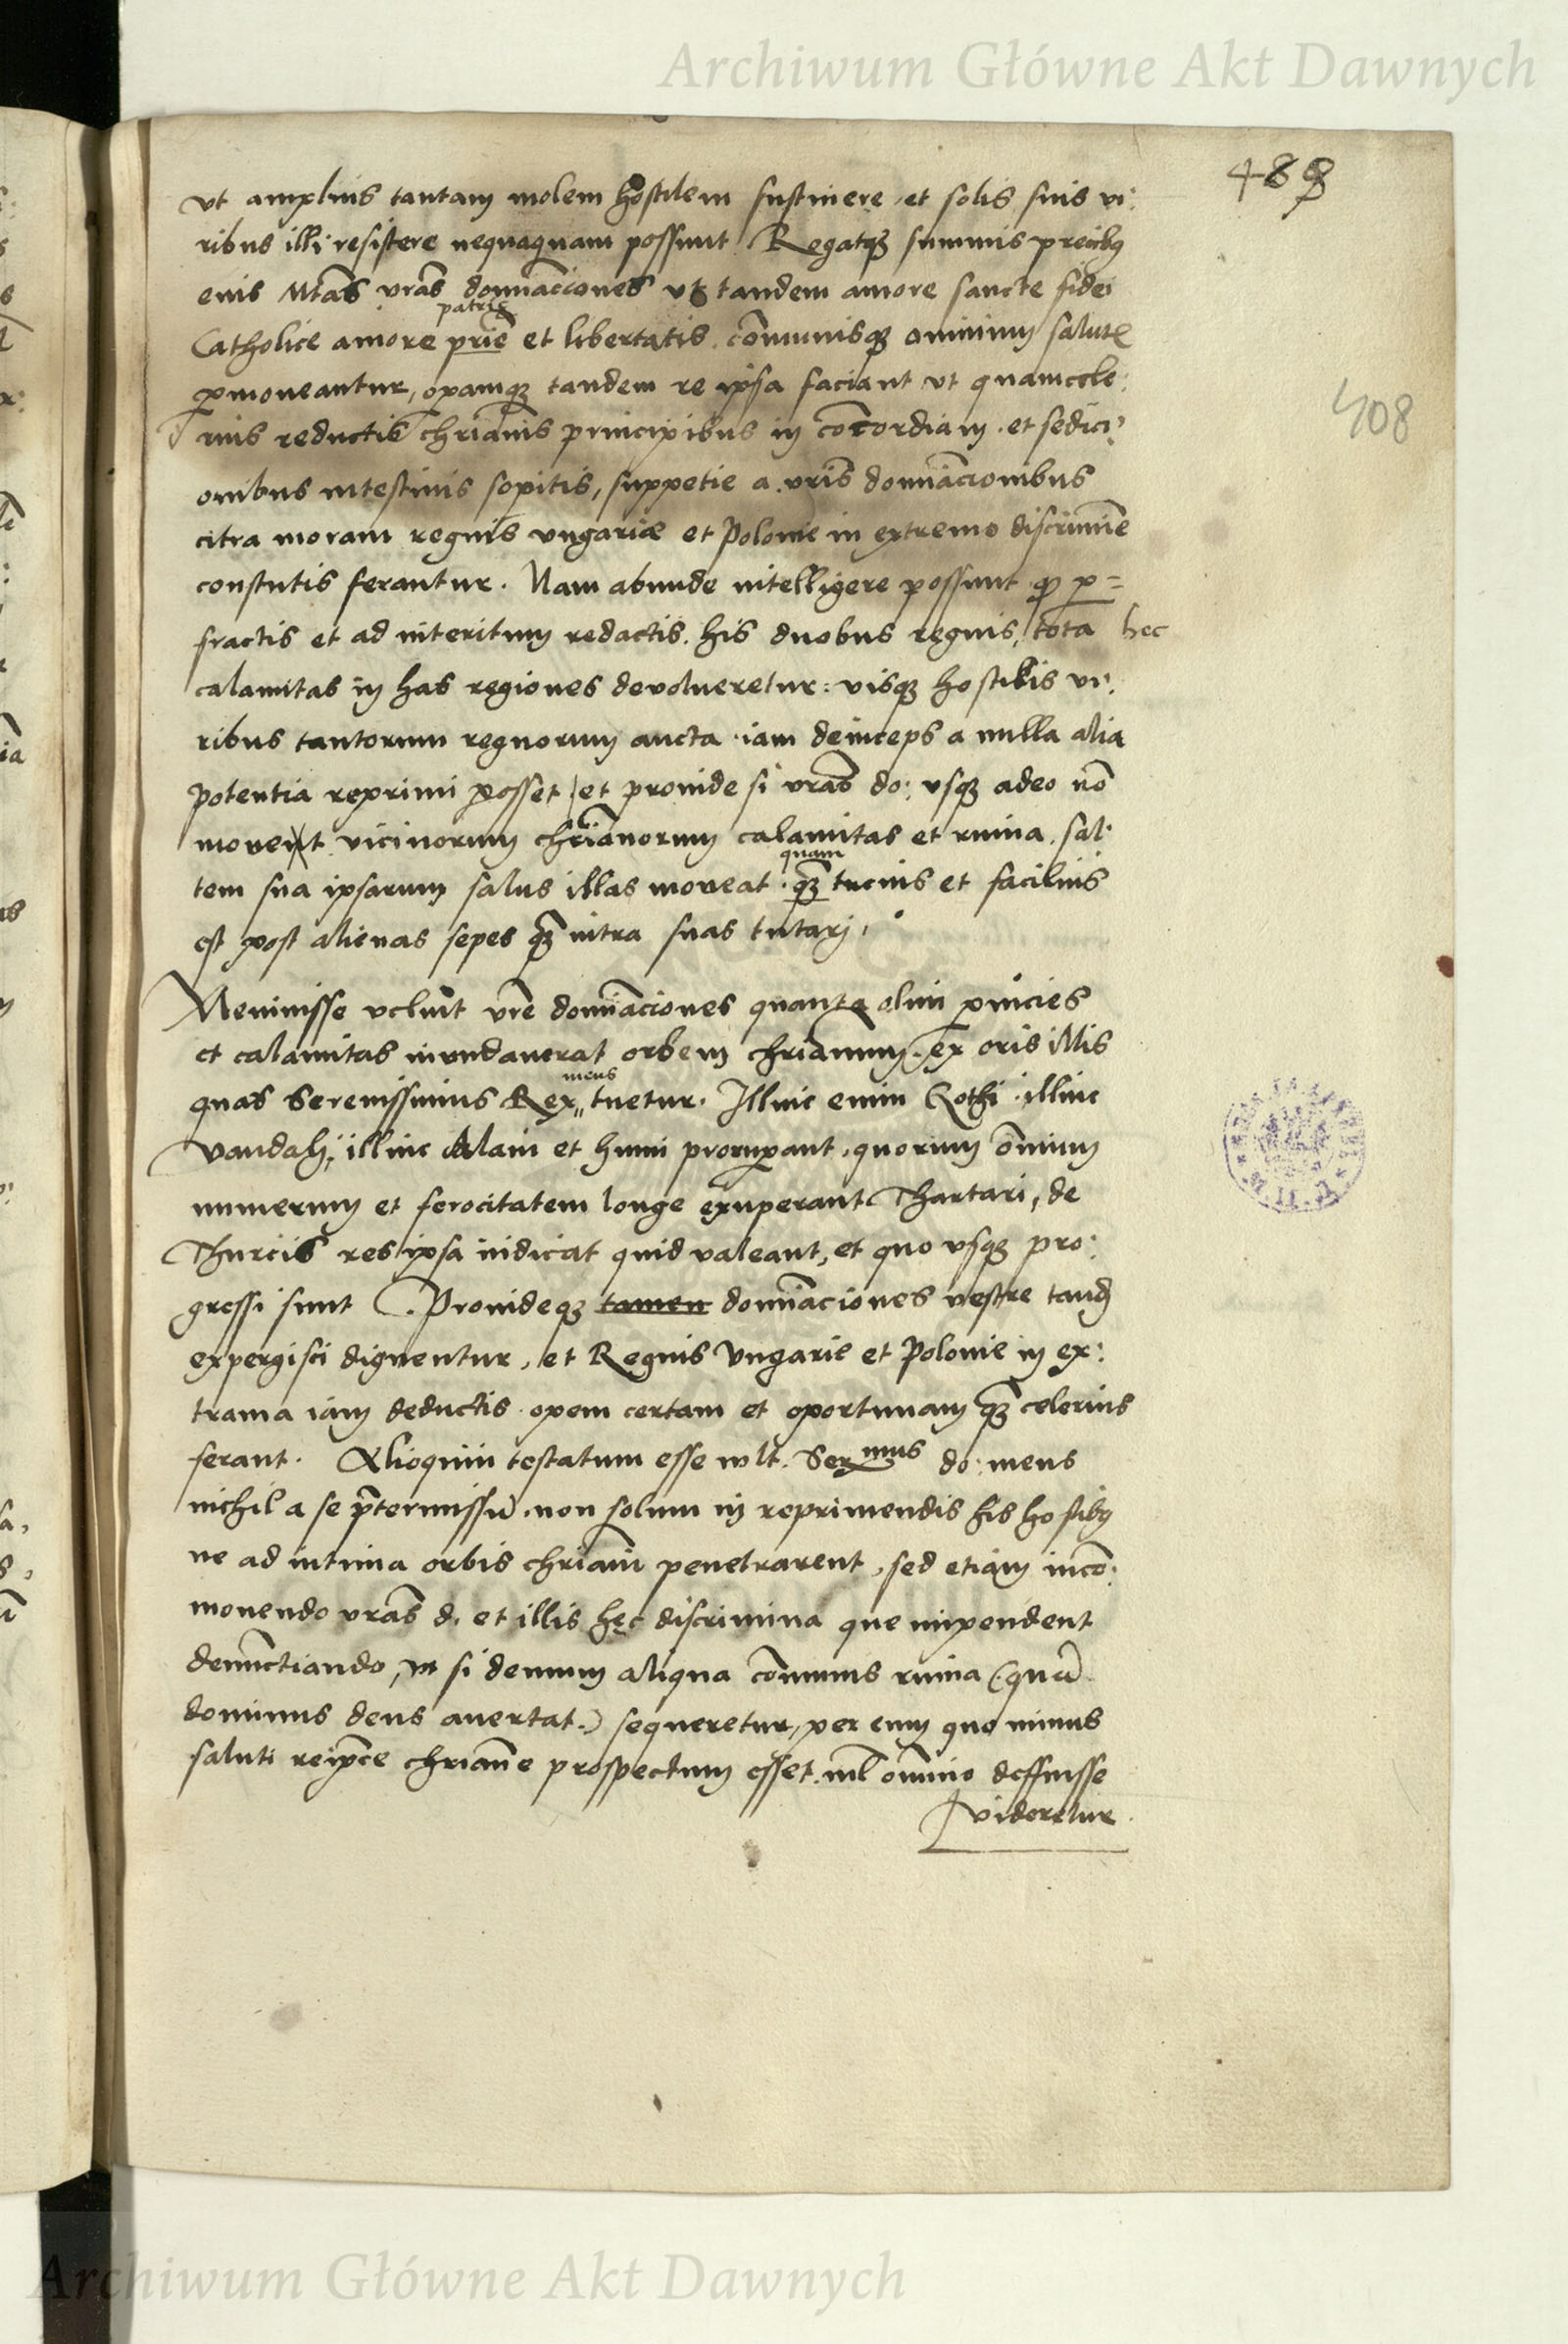 Archiwum Główne Akt Dawnych
489
vt amplius tantam molem hostilem sustinere et solis suis vi:
ribus illi resistere nequaquam possunt Rogatq3 summis precibq
eius Mtas vras domiaciones vt tandem amore sancte fidei
patrie
Catholice amore prie et libertatis. comunisq3 ominium salutis
pmoueantur, opamq3 tandem re ipsa faciant vt quamcele:
408
rius reductis chrianis principibus in concordiam. et sedici:
onibus intestinis sopitis, suppetie a vris domiacionibus
citra moram regnis vngariæ et Polonie in extremo discrimine
constutis ferantur. Nam abunde intelligere possunt qp p=
fractis et ad interitum redactis. his duobus regnis, tota hec
calamitas in has regiones deuolueretur: visq3 hostilis vi:
ribus tantorum regnorum aucta iam deinceps a nulla alia
potentia reprimi posset, et proinde si vras do: vsq3 adeo no
mouet vicinorum chrianorum calamitas et ruina. sal:
quam
tem sua ipsarum salus illas moueat. q3 tucius et facilius
est post alienas sepes q3 intra suas tutari.
Meminisse velint vre domiaciones quanta olim pnicies
et calamitas inundauerat orbem chrianum. ex oris illis
meus
quas Serenissimus Rex tuetur. Illinc enim Gothi illinc
Vandali, illinc Alani et hunni prorupant. quorum omium
numerum et ferocitatem longe exuperant Thartari, de
Thurcis res ipsa indicat quid valeant, et quo vsq3 pro:
gressi sunt. Proindeq3 tamen domiaciones vestre tand
expergisci dignentur, et Regnis Vngarie et Polonie in ex:
trama iam deductis opem certam et oportunam q3 celerius
ferant. Alioquin testatum esse wlt. Sermus do: meus
nichil a se ptermissu. non solum in reprimendis his hostibq
ne ad intima orbis chriani penetrarent, sed etiam inco:
monendo vras d. et illis hęc discrimina que impendent
denunctiando, vt si demum aliqua comunis ruina (qua
dominus deus auertat.) sequeretur, per eum quo minus
saluti reipce chriane prospectum esset. nil omnino deffuisse
videretur.
Archiwum Główne Akt Dawnych